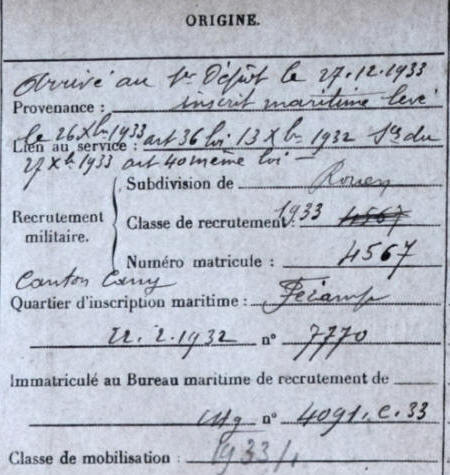 ORIGINE.
Arrivé au 1er Dépôt le 27.12.1933
Provenance : inscrit maritime levé
le 26 Xbre 1933
Lien au service : art 36 loi 13 Xbre 1932 Ss du
27 Xbre 1933 art 40 même loi —
Subdivision de Rouen
Recrutement militaire.
Classe de recrutement : 1933 4567
Numéro matricule : 4567
Canton Cany
Quartier d'inscription maritime : Fécamp
22.2.1932 n° 7770
Immatriculé au Bureau maritime de recrutement de
Chg n° 4091.C.33
Classe de mobilisation : 1933/1